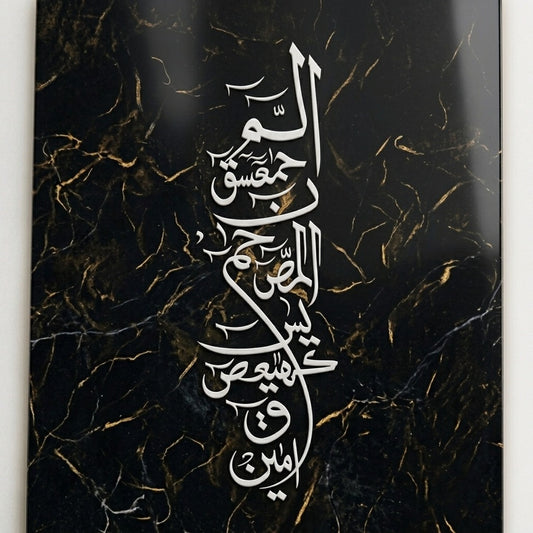 الـمّ
حمعسق
ن
حم المصّ
يس
كهيعص
ق
امين